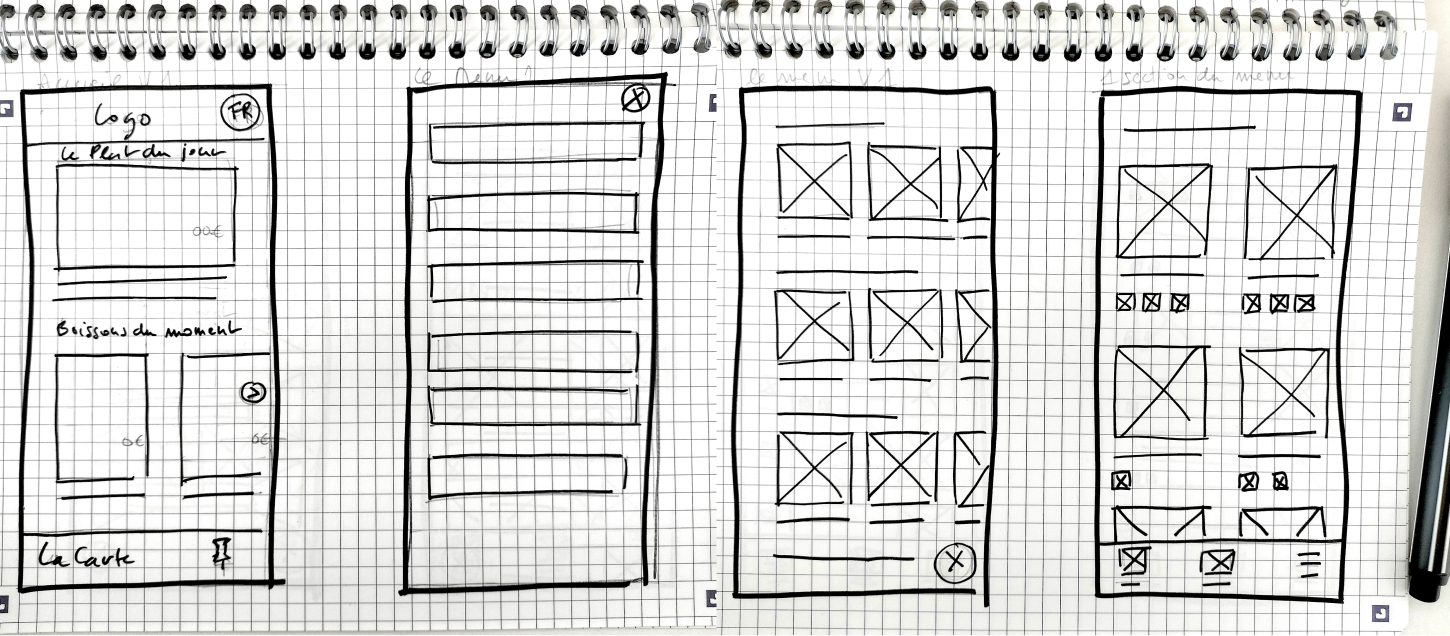 Accueil V1
Logo
FR
Le Plat du jour
00€
Boissons du moment
>
0€
0€
La Carte
Le Menu
X
Le menu V1
X
1 section du menu